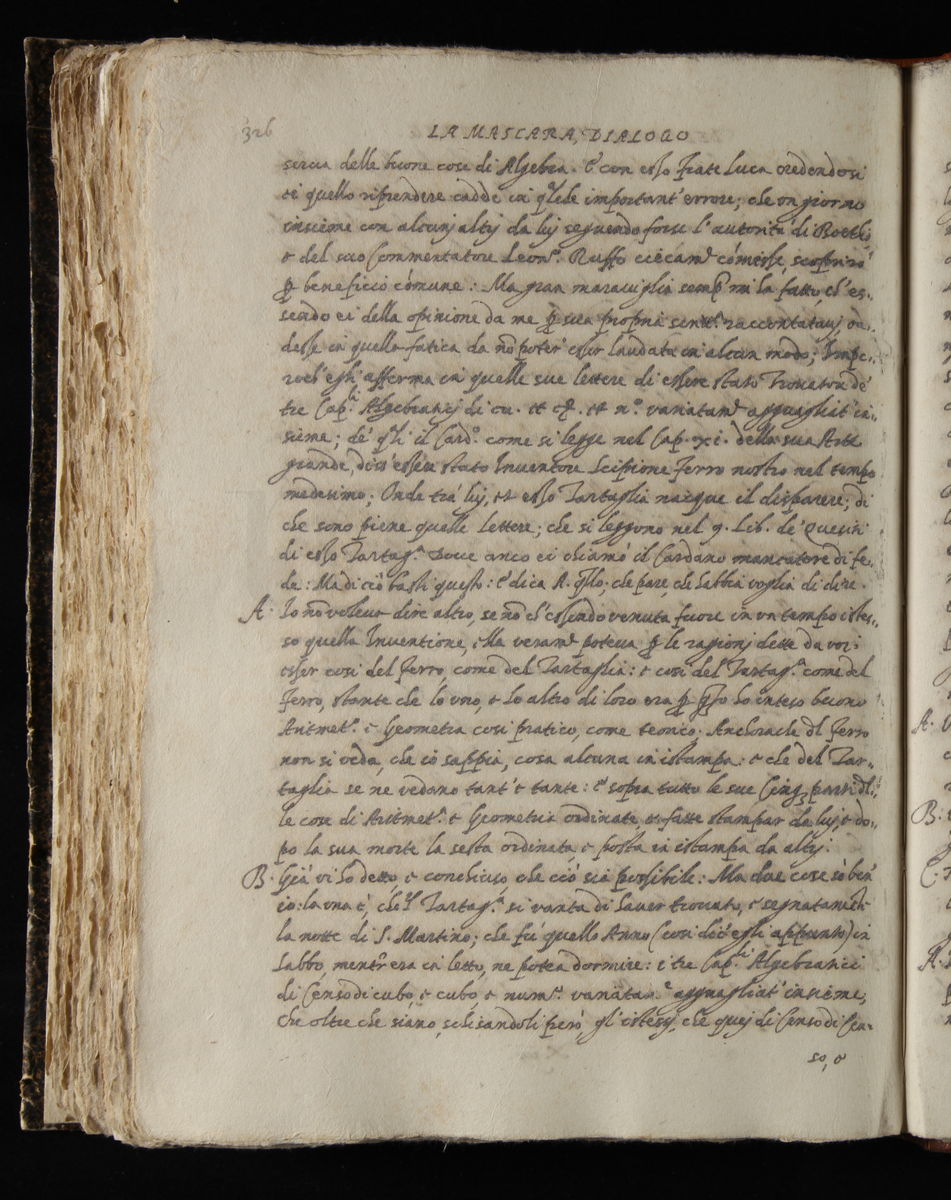 326
LA MASCARA, DIALOGO
seria delle buone cose di Algebra. E con esso Frate Luca credendosi
ei quello riprendere cadde in important' errore; che un giorno
insieme con alcunj altrj da luj seguendo forse l'autorità di Boethio
e del suo Commentatore Leon.º Ruffo ciecam.te scoprirò
beneficio comune: Ma gran maraviglia mi fà fatto, ch' es-
sendo ei della opinione da me sua propria raccontatavj, ca-
desse in quella fatica da nō poter' esser laudata in alcun modo; Impe-
roch' eglj afferma in quelle sue lettere di essere stato Trovator dè
tre Cap.li Algebraticj di cu. et et n.º variatam.e agguagliat' in-
sieme; de' q.li il Card.º come si legge nel Cap. xi. della sua Arte
grande, diss' essere stato Inventore Scipione Ferro nostro nel tempo
medesimo; Onde trà luj, et esso Tartaglia nacque il disparere; di
che sono piene quelle lettere; che si leggono nel 9. Lib. de' Quesiti
di esso Tartag.a dove anco ei chiamò il Cardano mancatore di fe-
de: Ma di ciò basti questo: E dica A. che pare, che habbia voglia di dire.
A. Io nō voleva dire altro, se nō ch' essendo venuta fuore in un tempo istes-
so quella Inventione, ella veram.e poteva le ragionj dette da voi
esser così del Ferro, come del Tartaglia: e così del Tartag.a come del
Ferro, stante che lo uno, e lo altro di loro era hò inteso buono
Aritmet.º e Geometra così pratico, come teorico. Anchorache dl Ferro
non si veda, che iò sappia, cosa alcuna in istampa: e che del Tar-
taglia se ne vedano tant' e tante: e sopra tutto le sue Cinq; parti dl-
le cose di Aritmet.a e Geometria ordinate, et fatte stampar da luj, e do-
po la sua morte la sesta ordinata, e posta in istampa da altrj.
B. Già vi hò detto e conchiuso, che ciò sia possibile: Ma due cose sò ben'
io: la una è, che 'l Tartag.a si vanta di haver trovato, e segnatamēte
la notte di S. Martino; che fù quello Anno (così dic' eglj appunto) in
Sabbo, mentr' era in letto, ne potea dormire: i tre Cap.li Algebraticj
di Censo di cubo, e cubo, e num.º variatam.e agguagliat' insieme;
che oltre che siano, schisandoli però, gl' istessj, che quej di Censo di Cen-
so, o